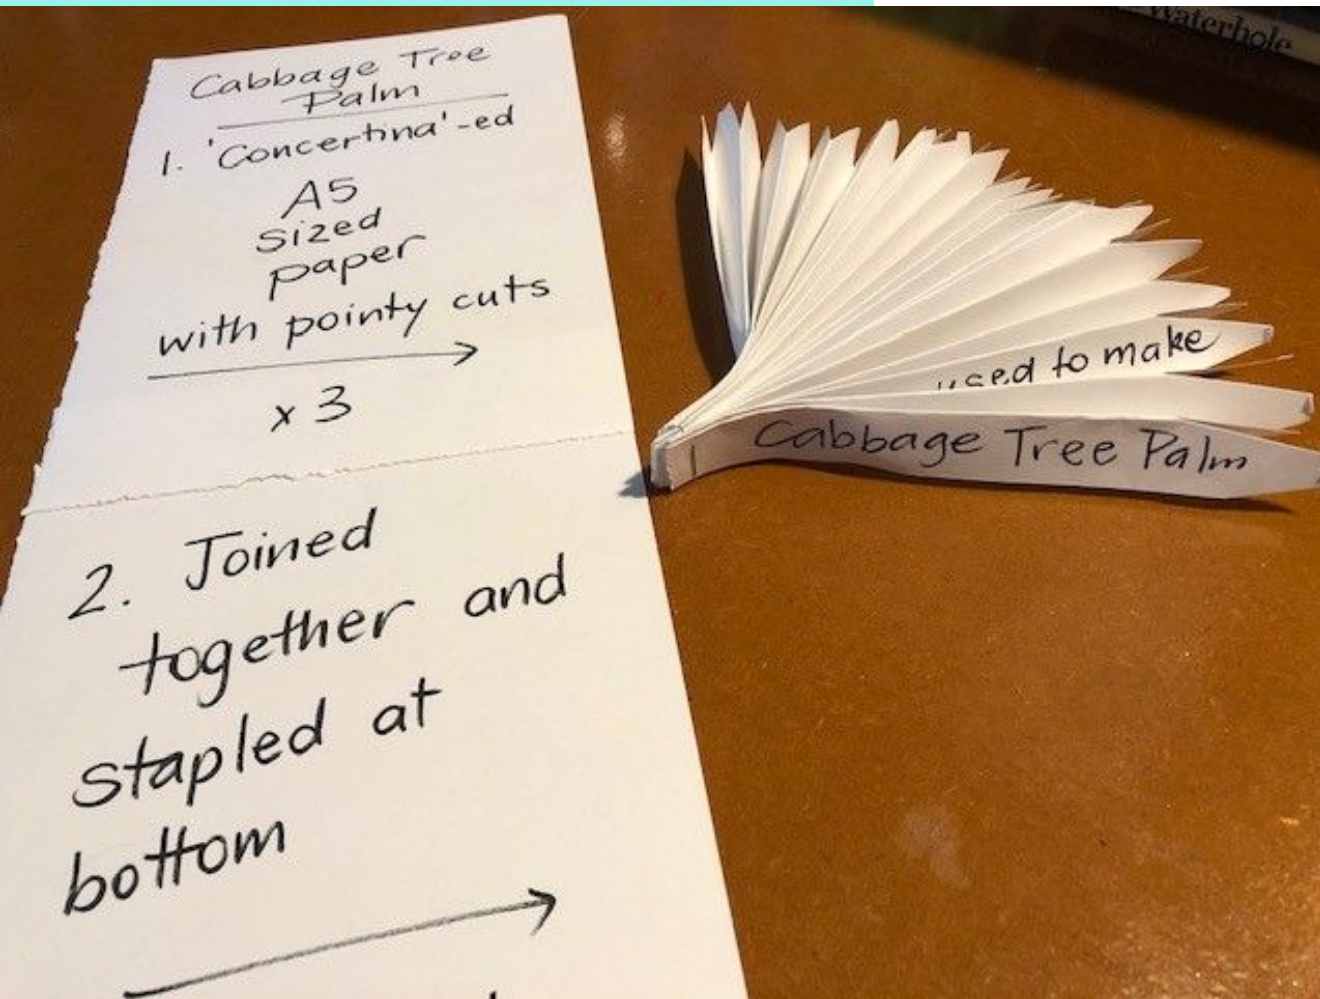 Cabbage Tree
Palm
1. 'Concertina'-ed
A5
sized
paper
with pointy cuts
x 3
2. Joined
together and
stapled at
bottom
used to make
Cabbage Tree Palm
Waterhole